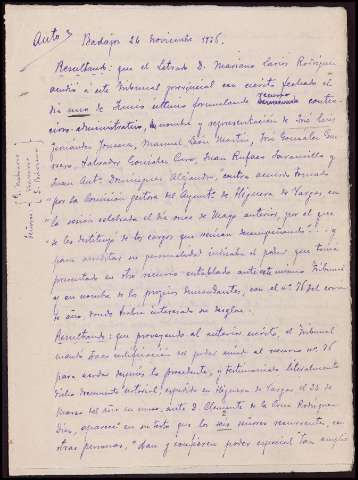 Auto
Badajoz 24 Noviembre 1936.
Resultando: que el Letrado D. Mariano Larios Rodríguez
acudió a este Tribunal provincial con escrito fechado el
día uno de Junio último formulando recurso conten-
cioso-administrativo, en nombre y representación de José Luis
Fernández Manuel León Martín, José González
Salvador González Juan Rufano Jaramillo y
Juan Antº. Domínguez Alejandro, contra acuerdo tomado
por la Comisión gestora del Ayuntº. de Higuera de Vargas, en
la sesión celebrada el día once de Mayo anterior, por el que
se les destituyó de los cargos que venían desempeñando y
para acreditar su personalidad indicaba el poder que tenía
presentado en otro recurso entablado ante este mismo Tribunal
y en nombre de los propios demandantes, con el nº 76 del corrte
año,
Resultando: que proveyendo al anterior escrito, el Tribunal
mandó traer certificación del poder unido al recurso nº. 76
para acordar después lo procedente, y testimoniado literalmente
dicho documento notarial, expedido en Higuera de Vargas el 22 de
Marzo del año en curso, ante D. Clemente de la Cruz Rodríguez
Díaz, apareció en su texto que los seis señores recurrentes, con
otras personas, "dan y confieren poder especial tan amplio